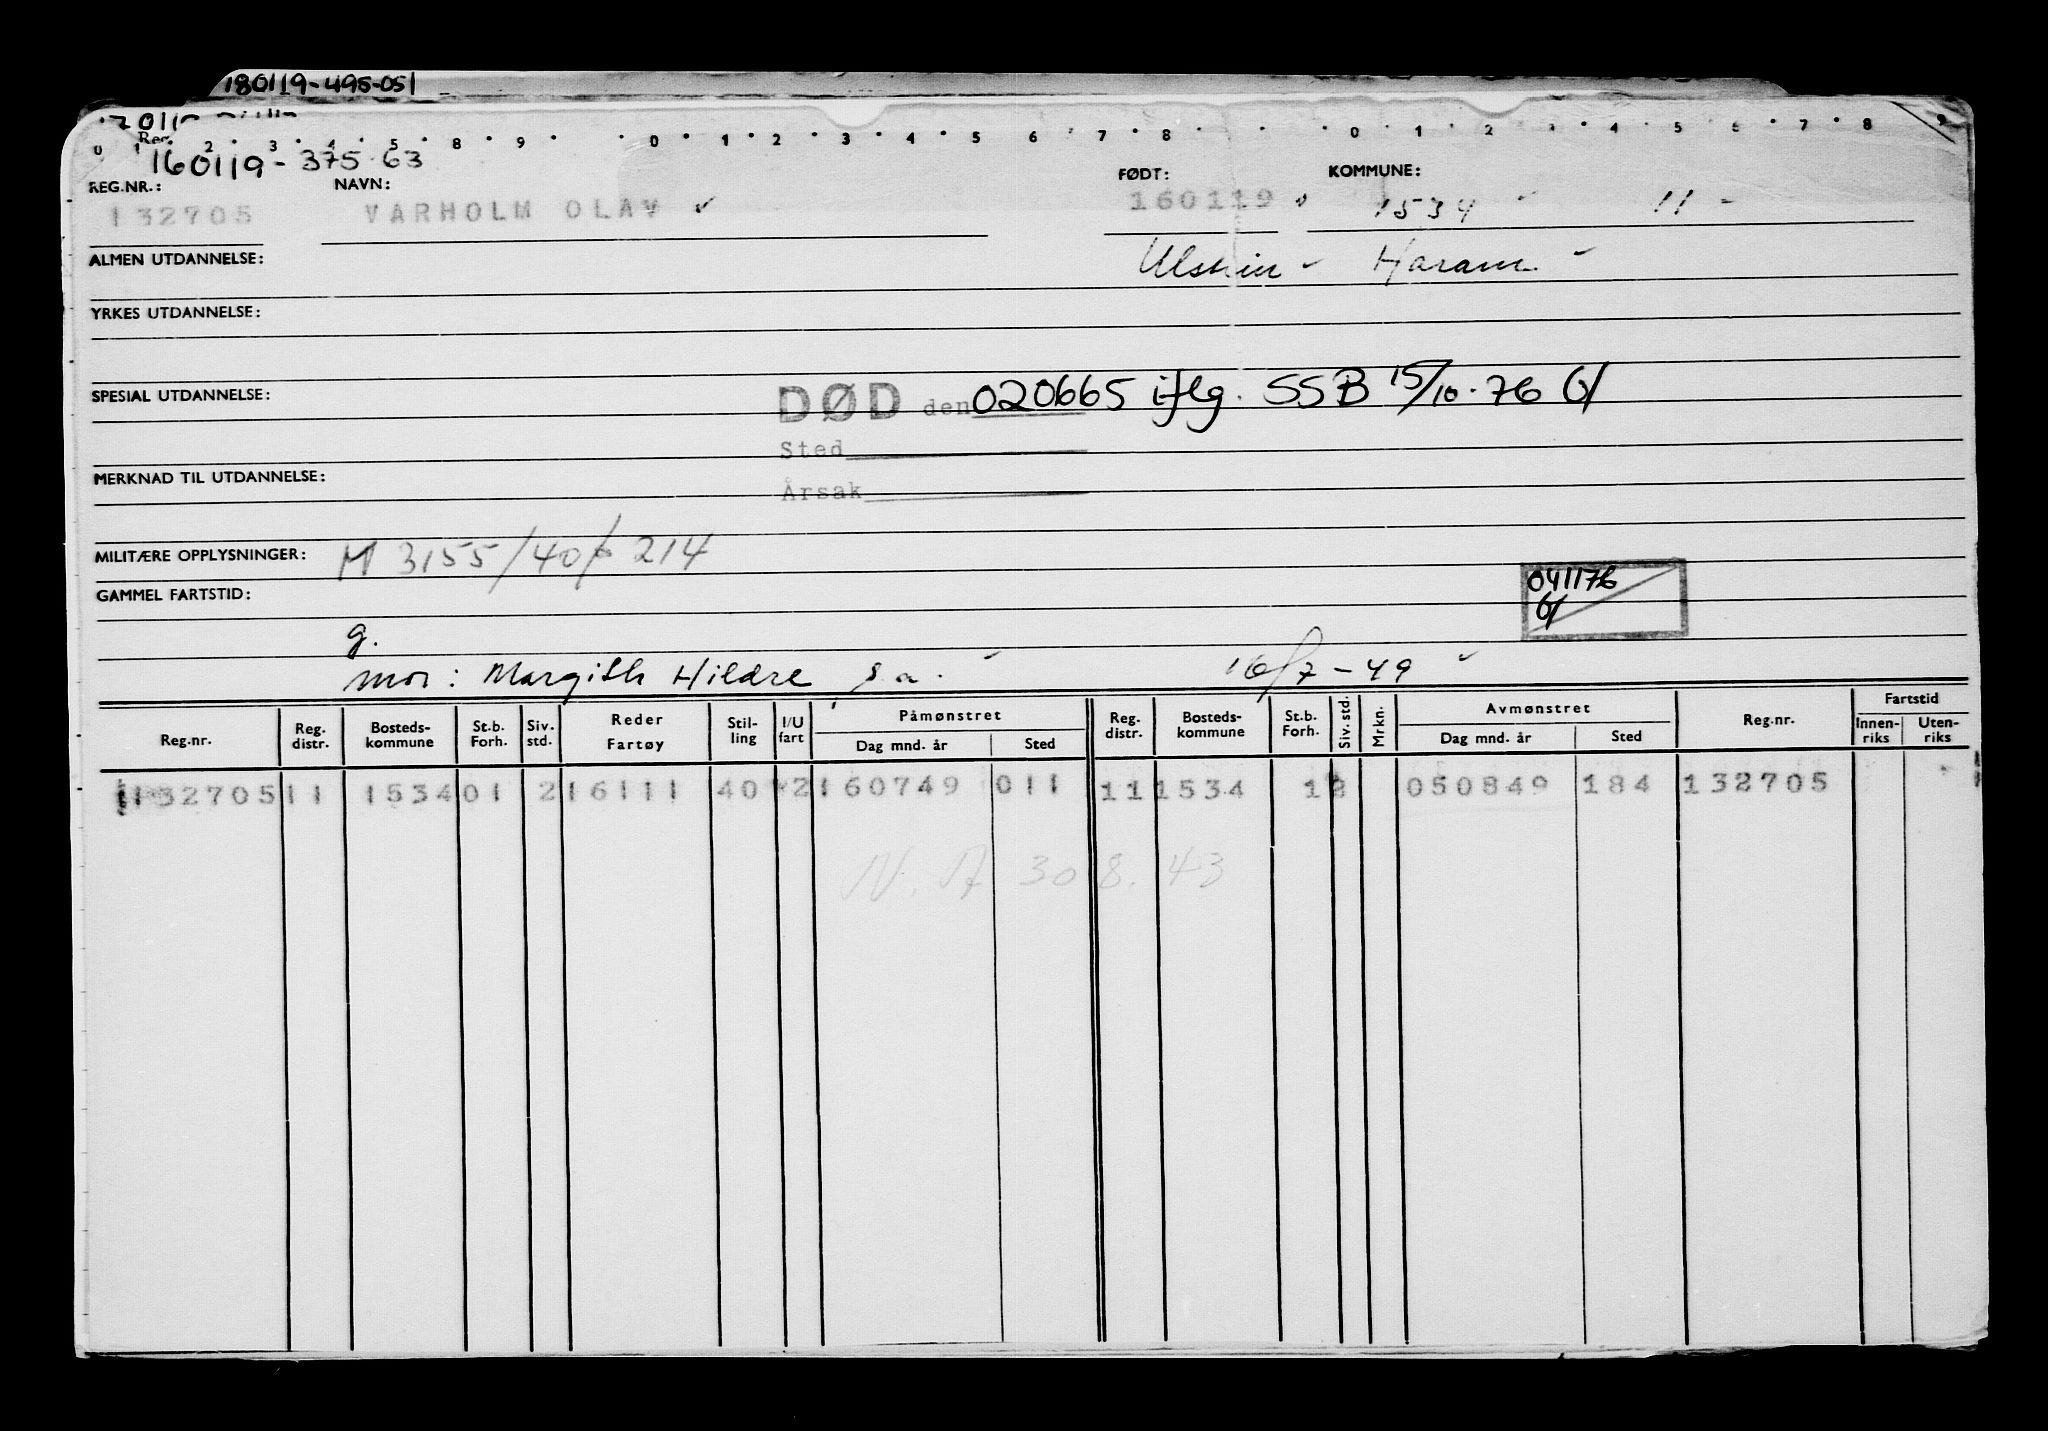 180119-495-051
0 1 2 3 4 5 8 9 0 1 2 3 4 5 6 7 8 0 1 2 4 5 6 7 8 9
160119-375 63
REG.NR.: NAVN: FØDT: KOMMUNE:
132705 VARHOLM OLAV 160119 1534 11
ALMEN UTDANNELSE: Haram
YRKES UTDANNELSE:
SPESIAL UTDANNELSE: DØD den 020665 iflg. SSB 15/10-76
Sted
MERKNAD TIL UTDANNELSE:
Årsak
MILITÆRE OPPLYSNINGER: M 3155/40/ 214
GAMMEL FARTSTID: 041176
g.
mor: Margith Hildre s.a. 16/7-49
Reg.nr. Reg. distr. Bosteds-kommune St.b. Forh. Siv. std. Reder Fartøy Stil-ling I/U fart Påmønstret Dag mnd. år Sted Reg. distr. Bosteds-kommune St.b. Forh. Siv. std. Mrkn. Avmønstret Dag mnd. år Sted Reg.nr. Fartstid Innen-riks Uten-riks
132705 11 1534 01 2 16111 40 2 160749 011 11 1534 1 2 050849 184 132705
N. A 30 8. 43